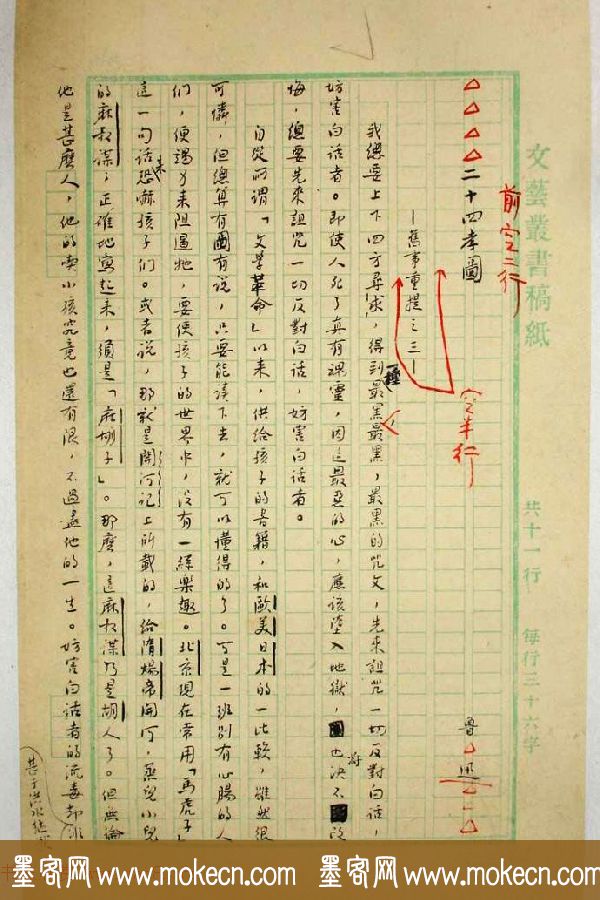 文藝叢書稿紙
共十一行 每行三十六字
前空二行
二十四孝圖
魯迅
空半行
—舊事重提之三—
我總要上下四方尋求，得到一種最黑，最黑，最黑的咒文，先來詛咒一切反對白話，
妨害白話者。即使人死了真有靈魂，因這最惡的心，應該墮入地獄，也將決不改
悔，總要先來詛咒一切反對白話，妨害白話者。
自從所謂「文學革命」以來，供給孩子的書籍，和歐美日本的一比較，雖然很
可憐，但總算有圖有說，只要能讀下去，就可以懂得的了。可是一班別有心腸的人
們，便竭力來阻遏牠，要使孩子的世界中，沒有一絲樂趣。北京現在常用「馬虎子」
這一句話來恐嚇孩子們。或者說，那就是開河記上所載的，給隋煬帝開河，蒸死小兒
的麻叔謀；正確地寫起來，須是「麻胡子」。那麼，這麻叔謀乃是胡人了。但無論
他是甚麼人，他的吃小孩究竟也還有限，不過盡他的一生。妨害白話者的流毒却
甚于洪水猛獸
墨客网 www.mokecn.com 墨客网 www.mokecn.com